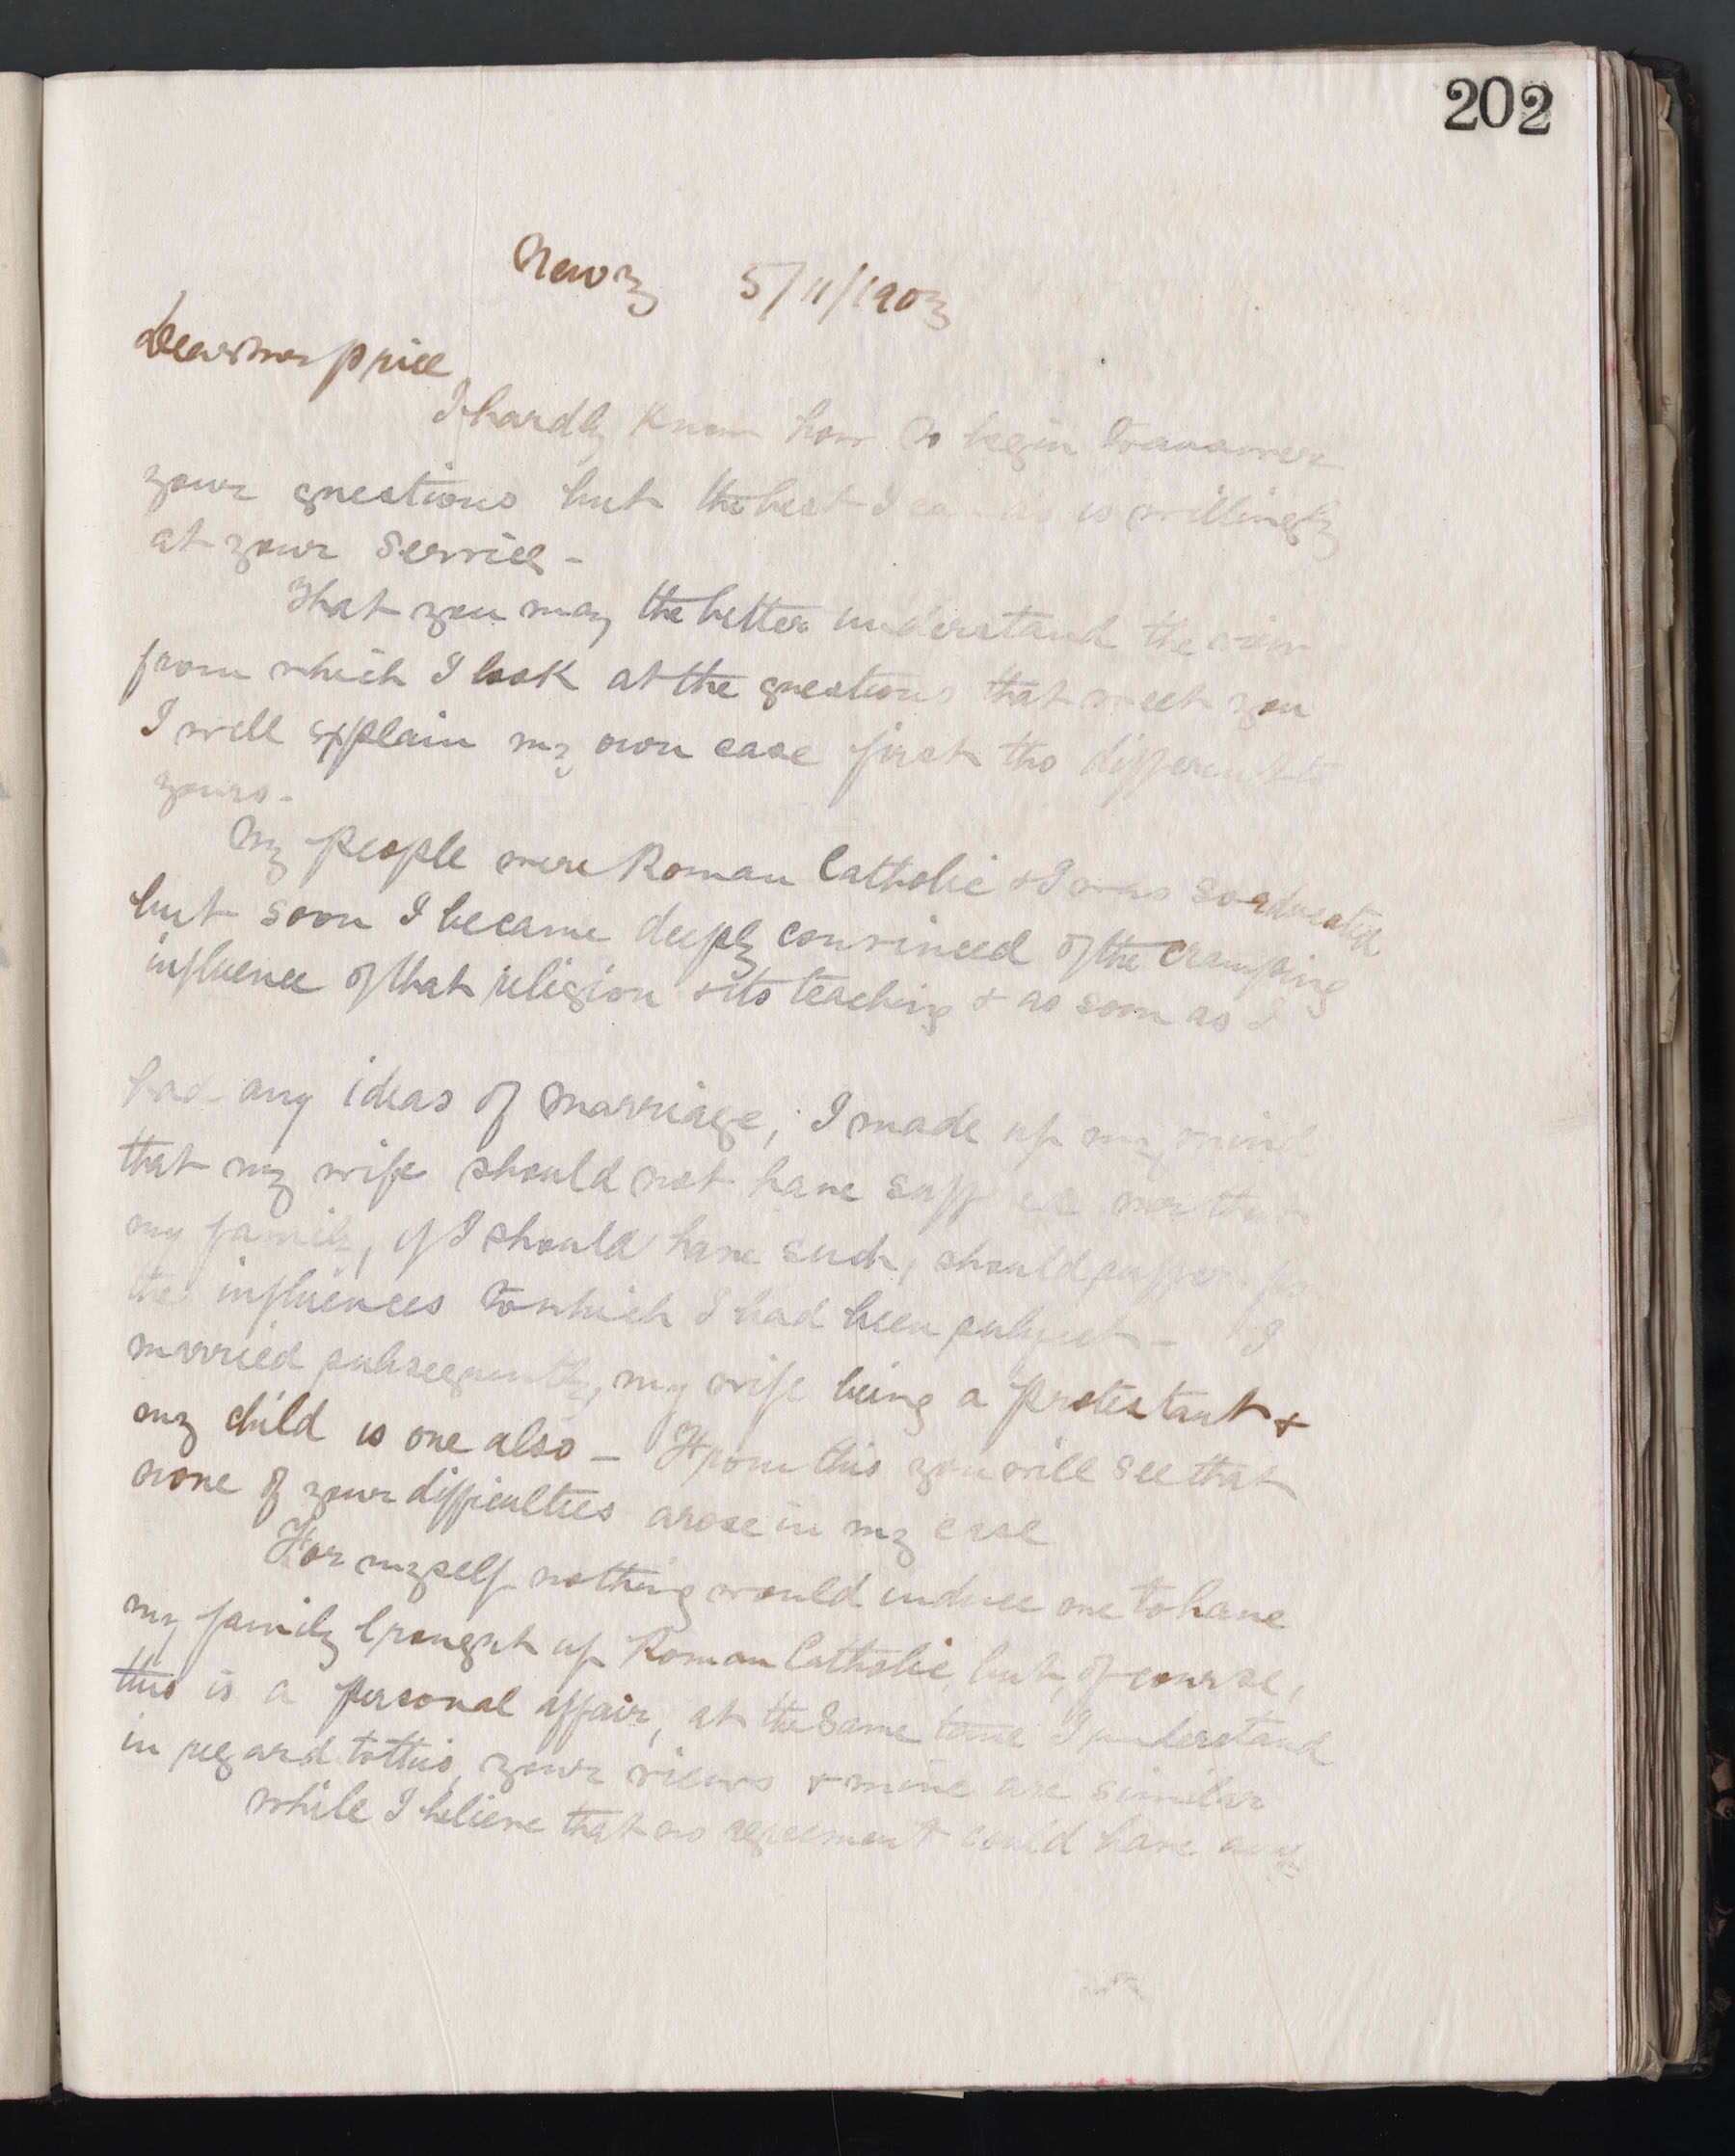 202
Newry 5/11/1903
Dear Mr Price
I hardly know how to begin to answer
your questions but the best I can is willingly
at your service -
That you may the better understand the view
from which I look at the questions that meet you
I will explain my own case first tho different to
yours -
My people were Roman Catholic & I was so educated
but soon I became deeply convinced of the cramping
influence of that religion & its teaching & as soon as I
had any ideas of marriage, I made up my mind
that my wife should not have
my family, if I should have such, should suffer
the influences to which I had been subject - I
married subsequently, my wife being a protestant &
my child is one also - From this you will see that
none of your difficulties arose in my case
For myself nothing would induce me to have
my family brought up Roman Catholic, but, of course,
this is a personal affair, at the same time I understand
in regard to this, your views & mine are similar
While I believe that no agreement could have any